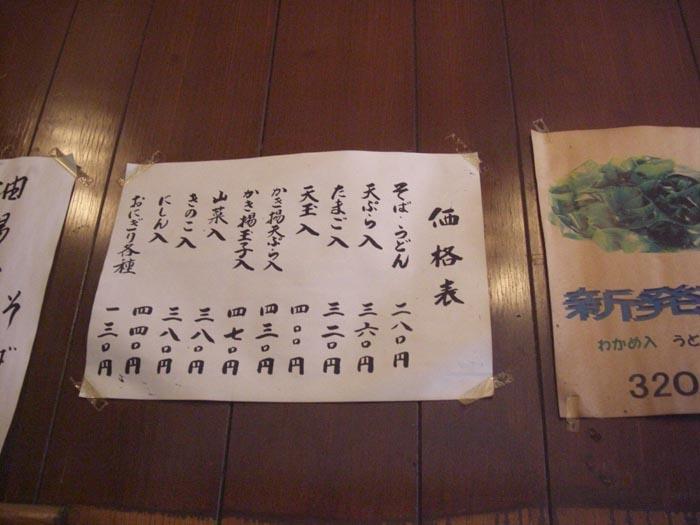 価格表
そば・うどん 二八〇円
天ぷら入 三六〇円
たまご入 三二〇円
天玉入 四〇〇円
かき揚天ぷら入 四三〇円
かき揚玉子入 四七〇円
山菜入 三八〇円
きのこ入 三八〇円
にしん入 四四〇円
おにぎり各種 一三〇円
新発
わかめ入 うど
320
そば